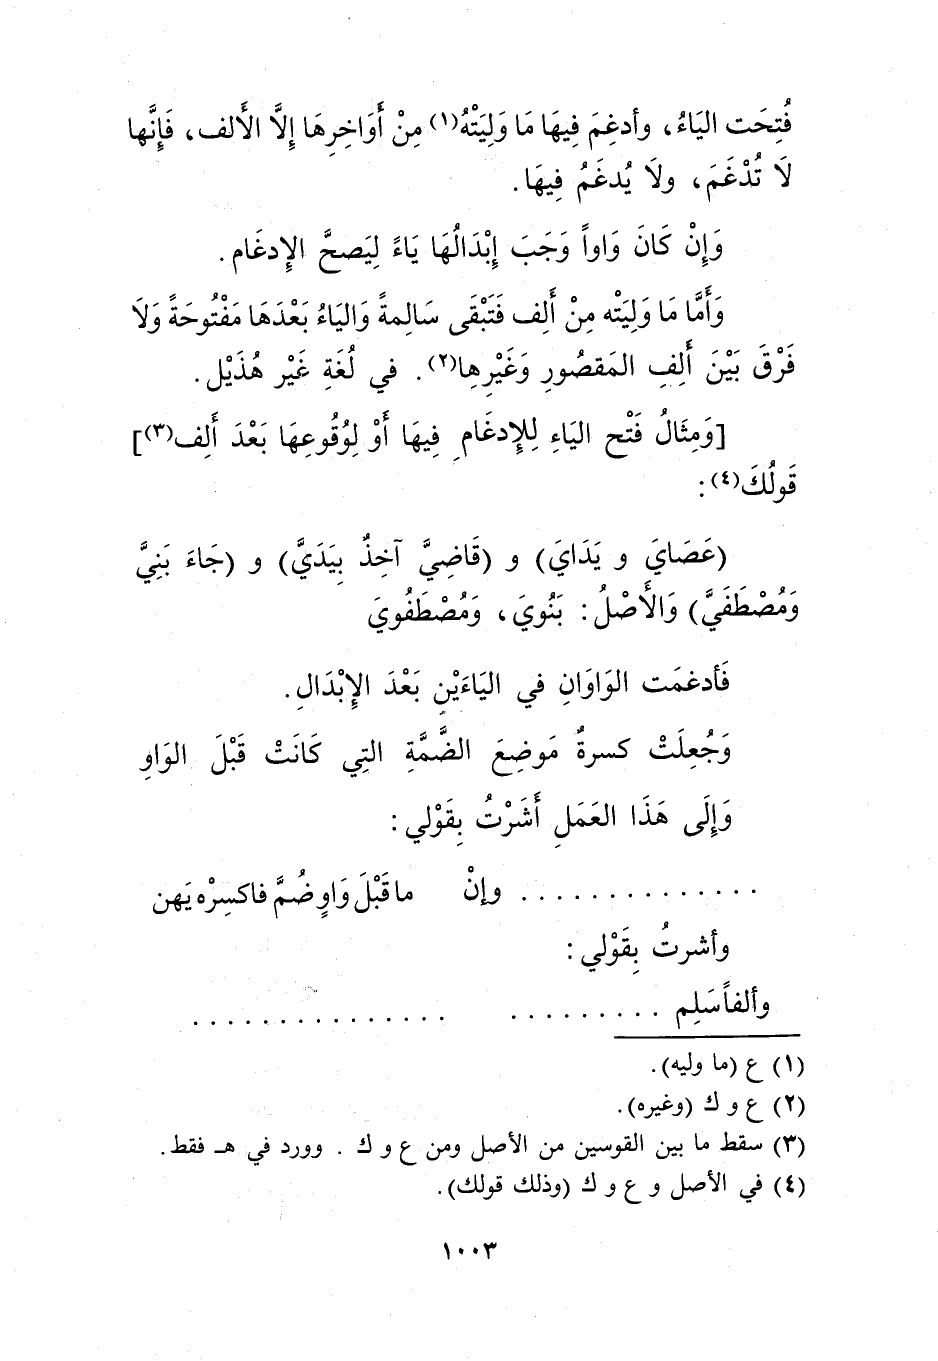 فُتِحَت اليَاءُ، وأدغِمَ فِيهَا مَا وَلِيَتْهُ(١) مِنْ أَوَاخِرِهَا إِلَّا الأَلف، فَإِنَّها
لَا تُدْغَمَ، ولَا يُدغَمُ فِيهَا.
وَإِنْ كَانَ وَاواً وَجَبَ إِبْدَالُهَا يَاءً لِيَصحَّ الإِدغَام.
وَأَمَّا مَا وَلِيَتْه مِنْ أَلِف فَتَبْقَى سَالِمةً وَاليَاءُ بَعْدَهَا مَفْتُوحَةً وَلَا
فَرْقَ بَيْنَ أَلِفِ المَقصُورِ وَغَيْرِها(٢). في لُغَةِ غَيْر هُذَيْل.
[وَمِثَالُ فَتْح اليَاءِ لِلإِدغَامِ فِيهَا أَوْ لِوُقُوعِهَا بَعْدَ أَلِف(٣)]
قَولُكَ(٤):
(عَصَايَ و يَدَايَ) و (قَاضِيَّ آخِذٌ بِيَدَيَّ) و (جَاءَ بَنِيَّ
وَمُصْطَفَيَّ) وَالأَصْلُ: بَنُويَ، وَمُصْطَفُويَ
فَأدغمَت الوَاوَانِ في اليَاءَيْنِ بَعْدَ الإِبْدَالِ.
وَجُعِلَتْ كسرةٌ مَوضِعَ الضَّمَّةِ التِي كَانَتْ قَبْلَ الوَاوِ
وَإِلَى هَذَا العَمَلِ أَشَرْتُ بِقَوْلي:
. . . . . . . . . . . . . . وإنْ ما قَبْلَ وَاوٍ ضُمَّ فاكسِرْه يَهن
وأشرتُ بِقَوْلي:
وألفاً سَلِم . . . . . . . . . . . . . . . . . . . . . . . .
(١) ع (ما وليه).
(٢) ع و ك (وغيره).
(٣) سقط ما بين القوسين من الأصل ومن ع و ك . وورد في هـ فقط.
(٤) في الأصل و ع و ك (وذلك قولك).
١٠٠٣